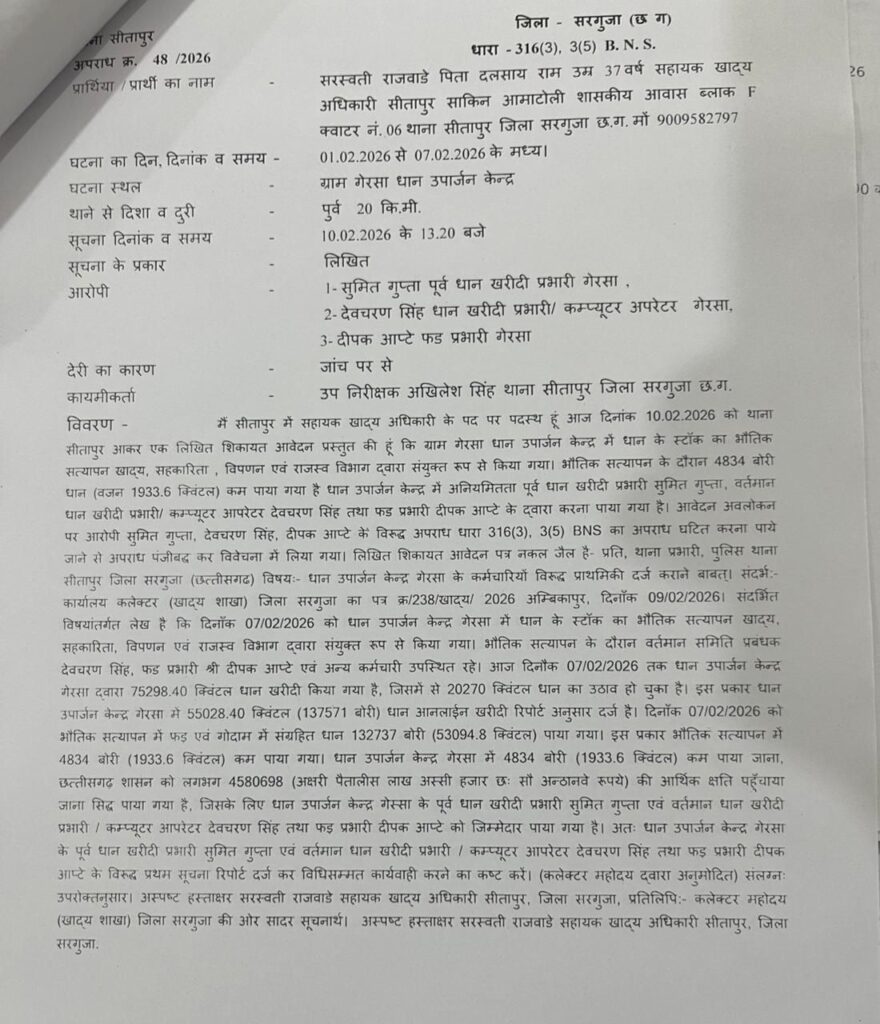 जिला - सरगुजा (छ ग)
सीतापुर
धारा - 316(3), 3(5) B. N. S.
अपराध क्र. 48 /2026
प्रार्थिया /प्रार्थी का नाम - सरस्वती राजवाडे पिता दलसाय राम उम्र 37 वर्ष सहायक खाद्य
अधिकारी सीतापुर साकिन आमाटोली शासकीय आवास ब्लाक F
क्वाटर नं. 06 थाना सीतापुर जिला सरगुजा छ.ग. मों 9009582797
घटना का दिन, दिनांक व समय - 01.02.2026 से 07.02.2026 के मध्य।
घटना स्थल - ग्राम गेरसा धान उपार्जन केन्द्र
थाने से दिशा व दुरी - पुर्व 20 कि.मी.
सूचना दिनांक व समय - 10.02.2026 के 13.20 बजे
सूचना के प्रकार - लिखित
आरोपी - 1- सुमित गुप्ता पूर्व धान खरीदी प्रभारी गेरसा ,
2- देवचरण सिंह धान खरीदी प्रभारी/ कम्प्यूटर अपरेटर गेरसा,
3- दीपक आप्टे फड प्रभारी गेरसा
देरी का कारण - जांच पर से
कायमीकर्ता - उप निरीक्षक अखिलेश सिंह थाना सीतापुर जिला सरगुजा छ.ग.
विवरण - मैं सीतापुर में सहायक खाद्य अधिकारी के पद पर पदस्थ हूं आज दिनांक 10.02.2026 को थाना
सीतापुर आकर एक लिखित शिकायत आवेदन प्रस्तुत की हूं कि ग्राम गेरसा धान उपार्जन केन्द्र में धान के स्टॉक का भौतिक
सत्यापन खाद्य, सहकारिता , विपणन एवं राजस्व विभाग द्वारा संयुक्त रूप से किया गया। भौतिक सत्यापन के दौरान 4834 बोरी
धान (वजन 1933.6 क्विंटल) कम पाया गया है धान उपार्जन केन्द्र में अनियमितता पूर्व धान खरीदी प्रभारी सुमित गुप्ता, वर्तमान
धान खरीदी प्रभारी/ कम्प्यूटर आपरेटर देवचरण सिंह तथा फड प्रभारी दीपक आप्टे के द्वारा करना पाया गया है। आवेदन अवलोकन
पर आरोपी सुमित गुप्ता, देवचरण सिंह, दीपक आप्टे के विरूद्ध अपराध धारा 316(3), 3(5) BNS का अपराध घटित करना पाये
जाने से अपराध पंजीबद्ध कर विवेचना में लिया गया। लिखित शिकायत आवेदन पत्र नकल जैल है- प्रति, थाना प्रभारी, पुलिस थाना
सीतापुर जिला सरगुजा (छत्तीसगढ) विषयः- धान उपार्जन केन्द्र गेरसा के कर्मचारियों विरूद्ध प्राथमिकी दर्ज कराने बाबत्। संदर्भः-
कार्यालय कलेक्टर (खाद्य शाखा) जिला सरगुजा का पत्र क्र/238/खाद्य/ 2026 अम्बिकापुर, दिनॉक 09/02/2026। संदर्भित
विषयांतर्गत लेख है कि दिनॉक 07/02/2026 को धान उपार्जन केन्द्र गेरसा में धान के स्टॉक का भौतिक सत्यापन खाद्य,
सहकारिता, विपणन एवं राजस्व विभाग द्वारा संयुक्त रूप से किया गया। भौतिक सत्यापन के दौरान वर्तमान समिति प्रबंधक
देवचरण सिंह, फड प्रभारी श्री दीपक आप्टे एवं अन्य कर्मचारी उपस्थित रहे। आज दिनॉक 07/02/2026 तक धान उपार्जन केन्द्र
गेरसा द्वारा 75298.40 क्विंटल धान खरीदी किया गया है, जिसमें से 20270 क्विंटल धान का उठाव हो चुका है। इस प्रकार धान
उपार्जन केन्द्र गेरसा में 55028.40 क्विंटल (137571 बोरी) धान आनलाईन खरीदी रिपोर्ट अनुसार दर्ज है। दिनॉक 07/02/2026 को
भौतिक सत्यापन में फड़ एवं गोदाम में संग्रहित धान 132737 बोरी (53094.8 क्विंटल) पाया गया। इस प्रकार भौतिक सत्यापन में
4834 बोरी (1933.6 क्विंटल) कम पाया गया। धान उपार्जन केन्द्र गेरसा में 4834 बोरी (1933.6 क्विंटल) कम पाया जाना,
छत्तीसगढ़ शासन को लगभग 4580698 (अक्षरी पैतालीस लाख अस्सी हजार छः सौ अन्ठानवे रूपये) की आर्थिक क्षति पहुँचाया
जाना सिद्ध पाया गया है, जिसके लिए धान उपार्जन केन्द्र गेरसा के पूर्व धान खरीदी प्रभारी सुमित गुप्ता एवं वर्तमान धान खरीदी
प्रभारी / कम्प्यूटर आपरेटर देवचरण सिंह तथा फड़ प्रभारी दीपक आप्टे को जिम्मेदार पाया गया है। अतः धान उपार्जन केन्द्र गेरसा
के पूर्व धान खरीदी प्रभारी सुमित गुप्ता एवं वर्तमान धान खरीदी प्रभारी / कम्प्यूटर आपरेटर देवचरण सिंह तथा फड़ प्रभारी दीपक
आप्टे के विरूद्ध प्रथम सूचना रिपोर्ट दर्ज कर विधिसम्मत कार्यवाही करने का कष्ट करें। (कलेक्टर महोदय द्वारा अनुमोदित) संलग्नः
उपरोक्तनुसार। अस्पष्ट हस्ताक्षर सरस्वती राजवाडे सहायक खाद्य अधिकारी सीतापुर, जिला सरगुजा, प्रतिलिपिः- कलेक्टर महोदय
(खाद्य शाखा) जिला सरगुजा की ओर सादर सूचनार्थ। अस्पष्ट हस्ताक्षर सरस्वती राजवाडे सहायक खाद्य अधिकारी सीतापुर, जिला
सरगुजा.